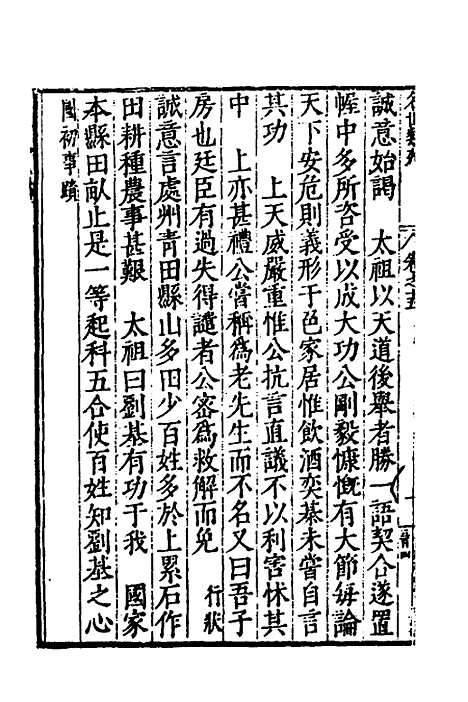 誠意始謁　太祖以天道後舉者勝一語契合遂置
幄中多所咨受以成大功公剛毅慷慨有大節每論
天下安危則義形于色家居惟飲酒奕棊未嘗自言
其功　上天威嚴重惟公抗言直議不以利害怵其
中　上亦甚禮公嘗稱爲老先生而不名又曰吾子
房也廷臣有過失得譴者公密爲救解而免　行狀
誠意言處州青田縣山多田少百姓多於上累石作
田耕種農事甚艱　太祖曰劉基有功于我　國家
本縣田畝止是一等起科五合使百姓知劉基之心
國初事蹟